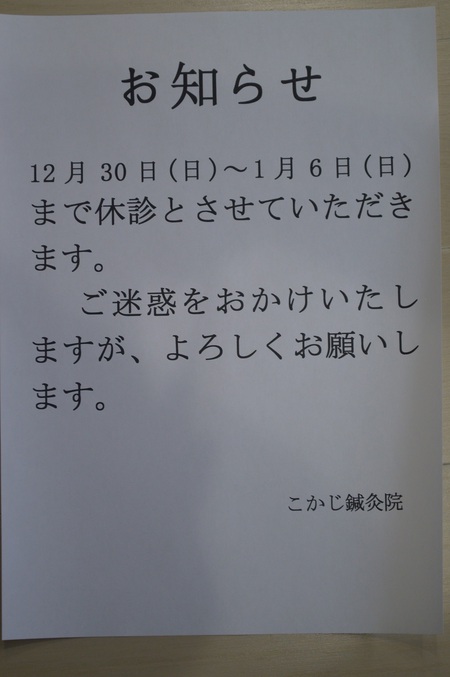 お知らせ
12月30日(日)～1月6日(日)
まで休診とさせていただき
ます。
　ご迷惑をおかけいたし
ますが、よろしくお願いし
ます。
こかじ鍼灸院